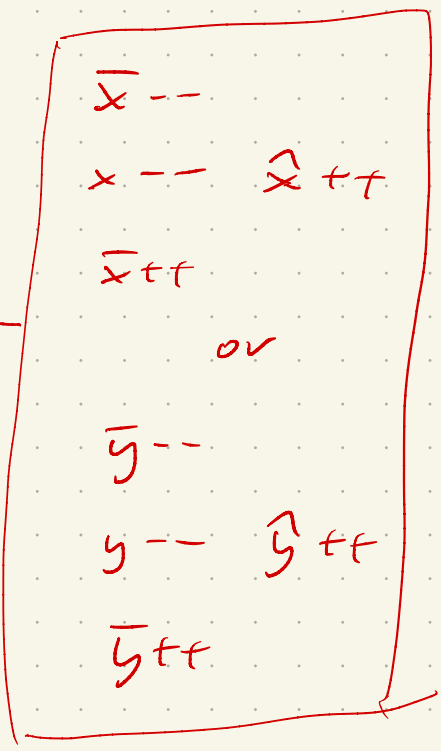 x̅ --
x -- x̂ ++
x̅ ++
or
y̅ --
y -- ŷ ++
y̅ ++